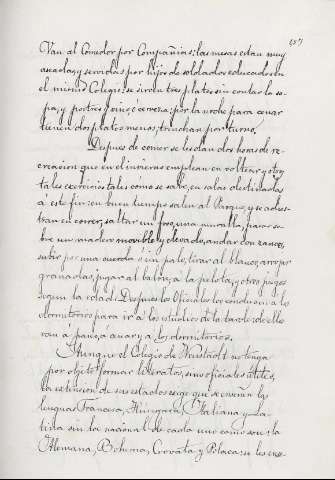 157
Van al Comedor por Compañias: las mesas estan muy
aseadas, y servidas por hijos de soldados educados en
el mismo Colegio: se sirven tres platos sin contar la so-
pa, y postres y vino, ó cerveza: por la noche para cenar
tienen dos platos menos, trinchan por turno.
Despues de comer se les dan dos horas de re-
creacion que en el invierno emplean en voltear y otros
tales exercicios tales como se sabe, en salas destinadas
á este fin: en buen tiempo salen al Parque, y se adies-
tran en correr, saltar un foso, una muralla, pasar so-
bre un madero movible y elevado, andar con zancos,
subir por una cuerda ó un palo, tirar al blanco, arrojar
granadas, jugar al balon, á la pelota, y otros juegos
segun la edad. Despues los Oficiales los conducen á los
dormitorios para ir á los estudios de la tarde: de ella
van á paseo, á cenar y a los dormitorios.
Aunque el Colegio de Neustadt no tenga
por objeto formar literatos, sino oficiales utiles,
la extension de sus estados exige que se enseñen las
lenguas Francesa, Hungara, Italiana y La-
tina sin la nacional de cada uno como son: la
Alemana, Bohema, Croata y Polaca: se les ense-